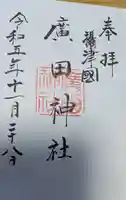 奉拝
攝津國
廣田神社
令和五年十一月二十八日